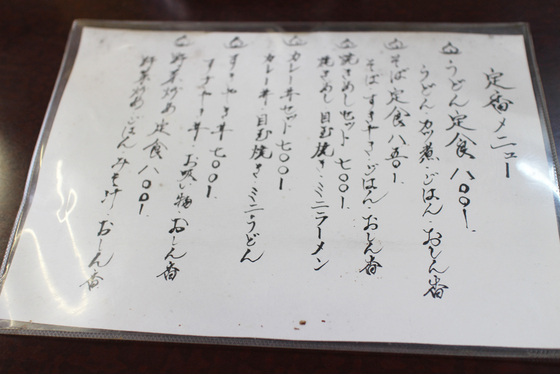 定番メニュー
うどん定食 八〇〇、
うどん・カツ煮・ごはん・おしん香
そば定食 八五〇、
そば・すきやき・ごはん・おしん香
焼きめしセット 七〇〇、
焼きめし・目玉焼き・ミニラーメン
カレー丼セット 七〇〇、
カレー丼・目玉焼き・ミニうどん
すきやき丼 七〇〇、
すきやき丼・お吸い物・おしん香
野菜炒め定食 八〇〇、
野菜炒め・ごはん・みそ汁・おしん香